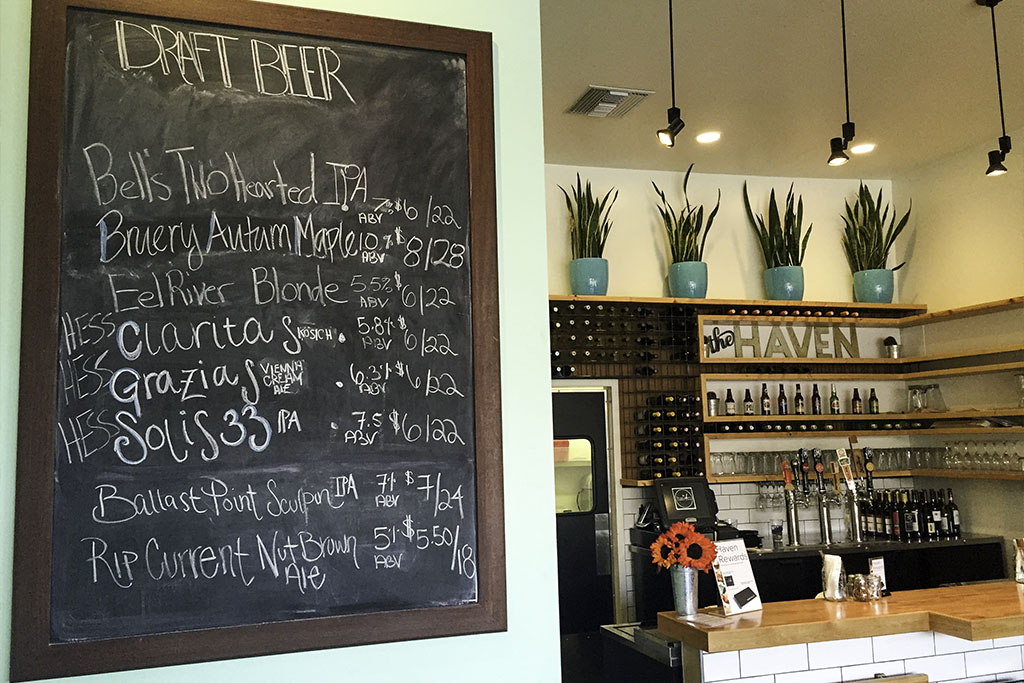 DRAFT BEER
Bell's Two Hearted IPA 7% ABV $6/22
Bruery Autum Maple 10% ABV $8/28
Eel River Blonde 5.5% ABV $6/22
HESS Claritas KÖSICH 5.8% ABV $6/22
HESS Grazias VIENNA CREAM ALE 6.3% ABV $6/22
HESS Solis 33 IPA 7.5 ABV $6/22
Ballast Point Sculpin IPA 7% ABV $7/24
Rip Current Nut Brown Ale 5% ABV $5.50/18
the HAVEN
Haven
Rewards